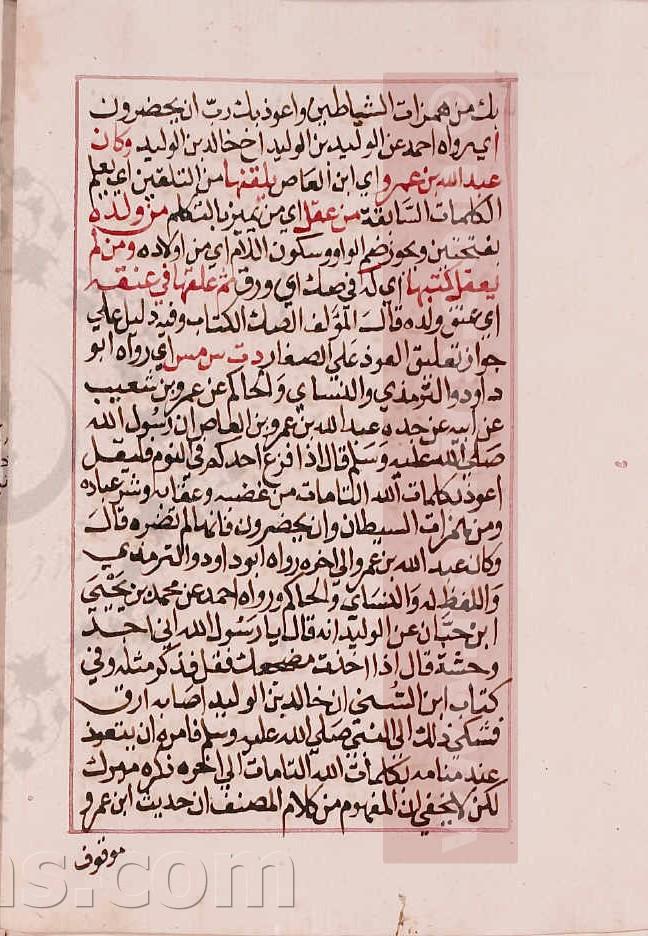 بك من همزات الشياطين واعوذ بك رب ان يحضرون
اي رواه احمد عن الوليد بن الوليد اخ خالد بن الوليد وكان
عبد الله بن عمرو اي ابن العاص يلقنها من التلقين اي يعلم
الكلمات السابقة من عقل اي من تميز بالتكلم من ولده
بفتحتين ويجوز ضم الواو وسكون اللام اي من اولاده ومن لم
يعقل كتبها اي له في صك اي ورق ثم علقها في عنقه
اي عنق ولده قال المؤلف الصك الكتاب وفيه دليل علي
جواز تعليق العوذ علي الصغار د ت س مس اي رواه ابو
داود والترمذي والنساي والحاكم عن عمرو بن شعيب
عن ابيه عن جده عبد الله بن عمرو بن العاص ان رسول الله
صلى الله عليه وسلم قال اذا فزع احدكم في النوم فليقل
اعوذ بكلمات الله التامات من غضبه وعقابه وشر عباده
ومن همزات الشيطان وان يحضرون فانها لم تضره قال
وكان عبد الله بن عمرو الي اخره رواه ابو داود والترمذي
واللفظ له والنساي والحاكم ورواه احمد عن محمد بن يحيي
ابن حبان عن الوليد انه قال يا رسول الله اني اجد
وحشة قال اذا اخذت مضجعك فقل فذكر مثله وفي
كتاب ابن السني ان خالد بن الوليد اصابه ارق
فشكي ذلك الي النبي صلي الله عليه وسلم فامره ان يتعوذ
عند منامه بكلمات الله التامات الي اخره ذكره ميرك
لكن لا يخفي ان المفهوم من كلام المصنف ان حديث ابن عمرو
موقوف
ns.com